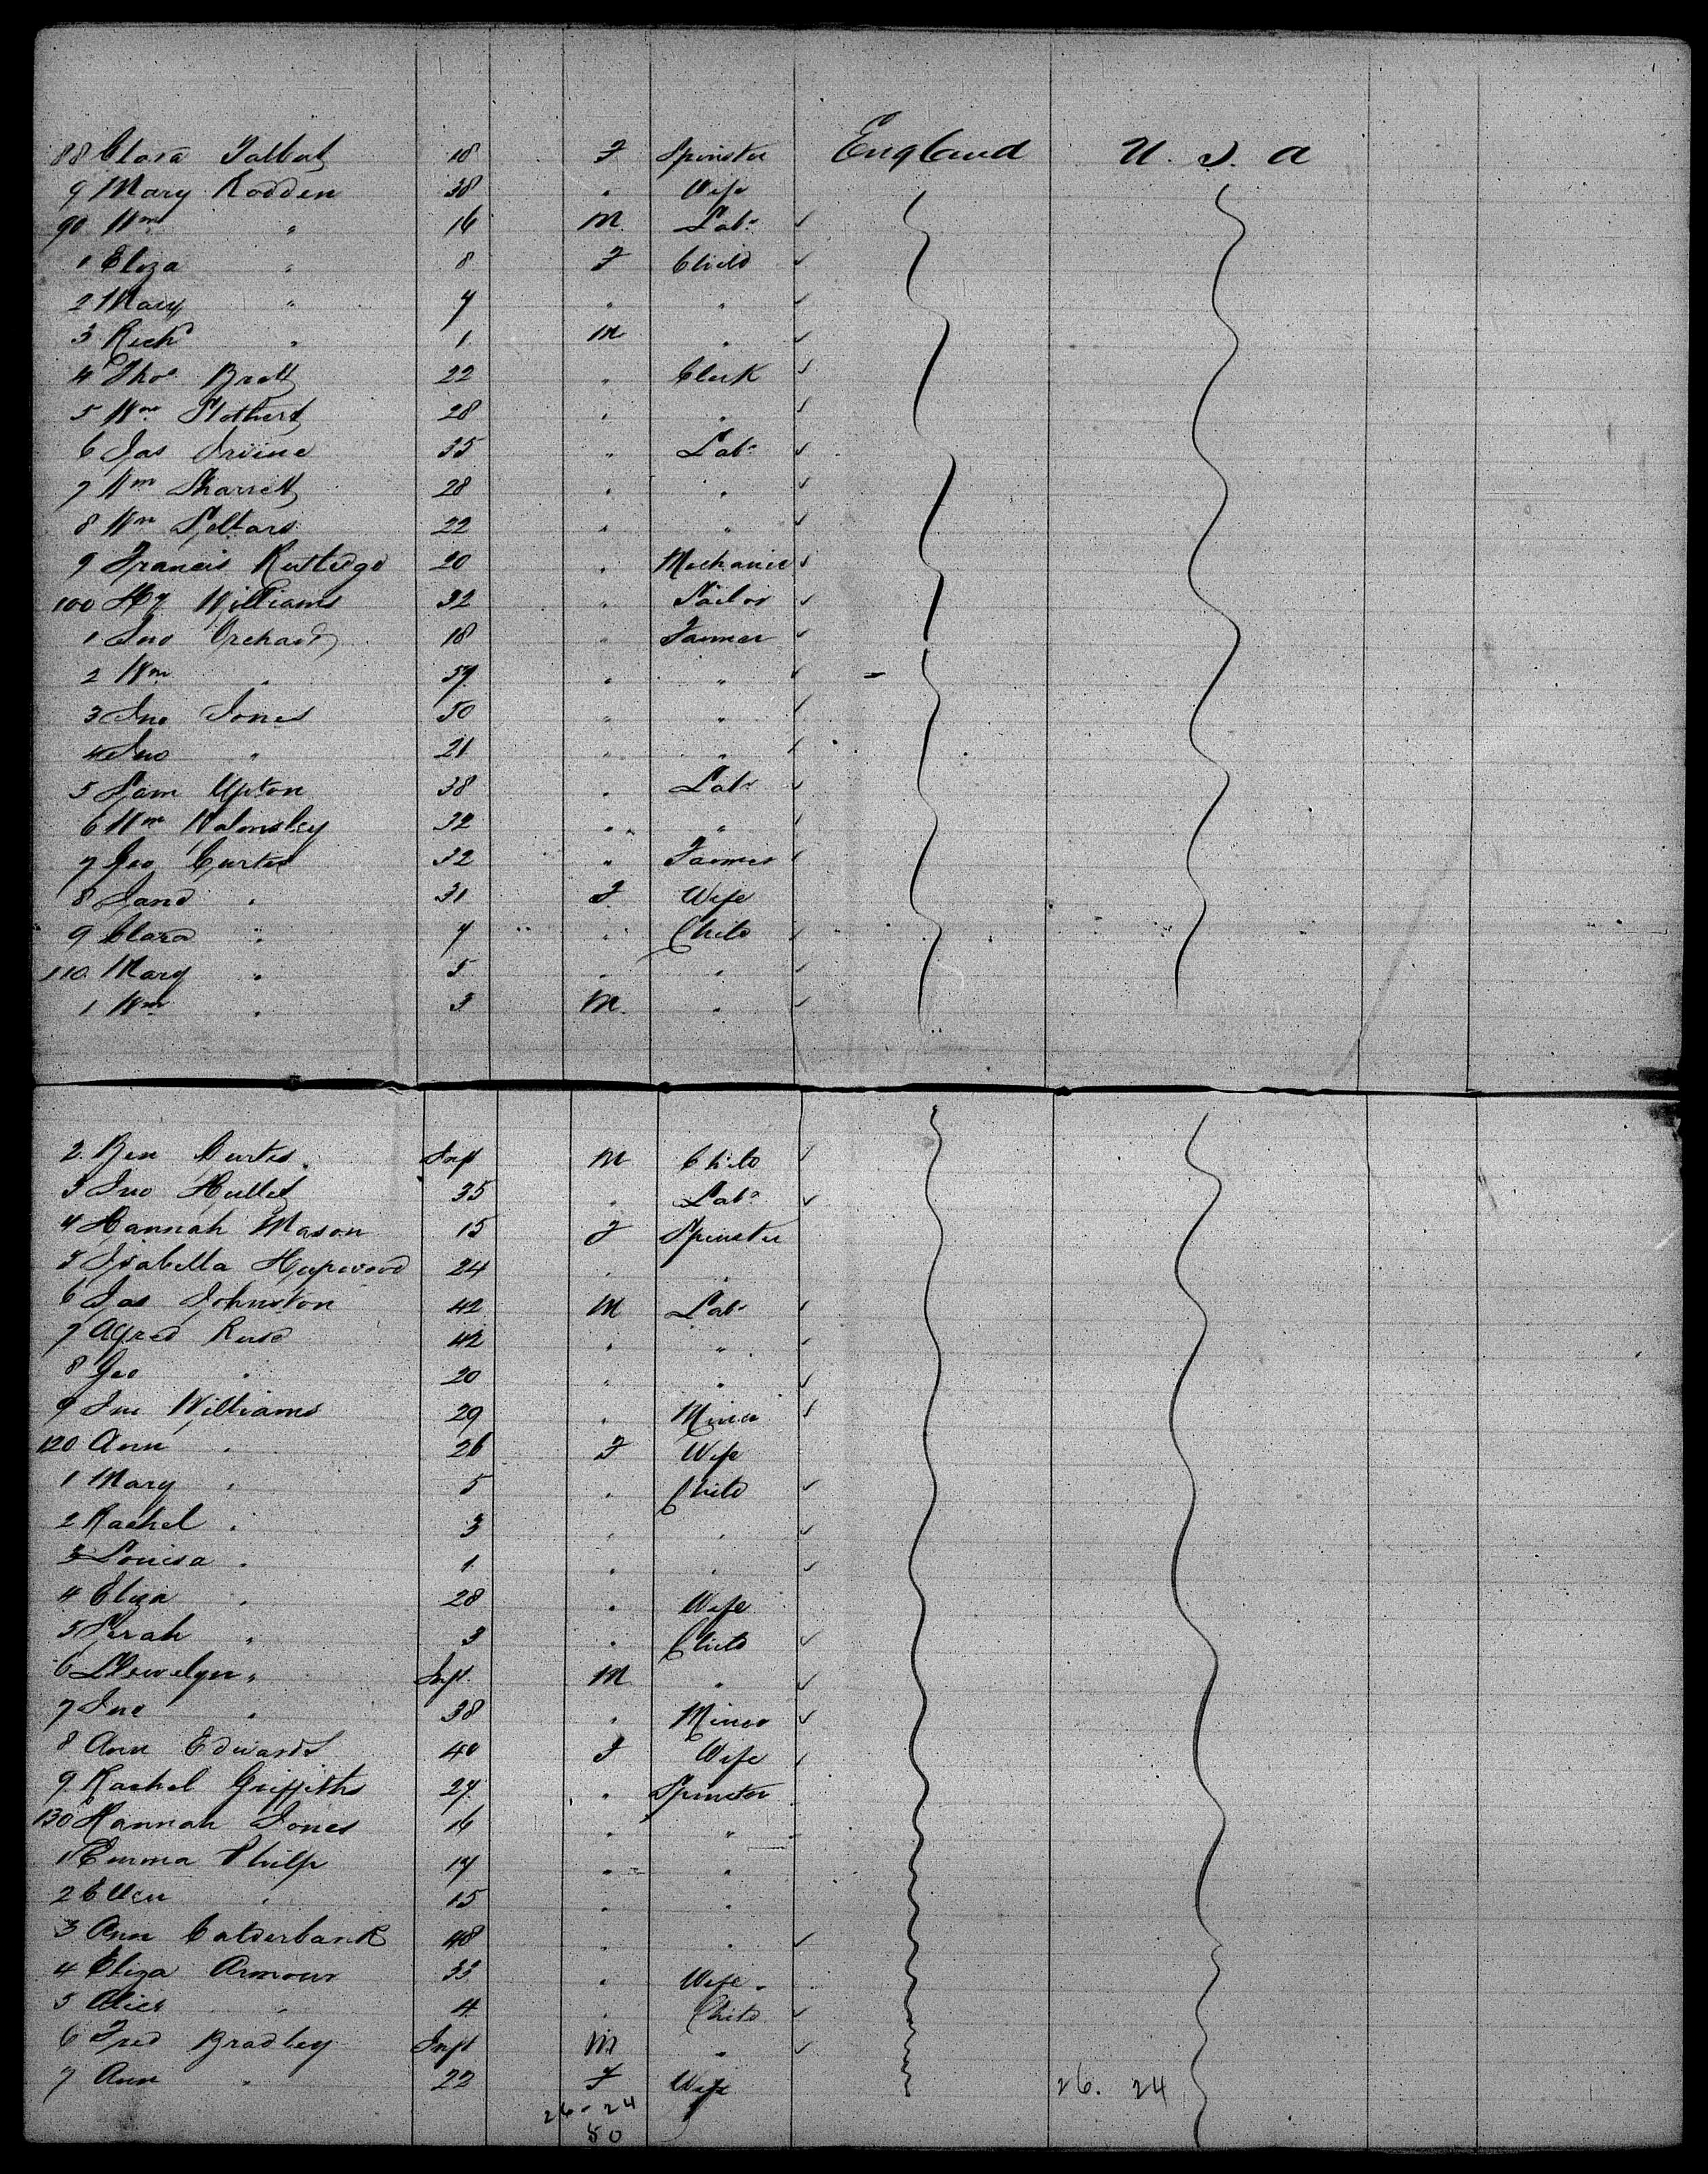 88 Clara Talbot 18 F Spinster England U. S. A
9 Mary Rodden 38 " Wife
90 Wm " 16 M Labr
1 Eliza " 8 F Child
2 Mary " 7 " "
3 Richd " 1 M "
4 Thos Brett 22 " Clerk
5 Wm Stothert 28 " "
6 Jas Irvine 35 " Labr
7 Wm Sharrett 28 " "
8 Wm 22 " "
9 Francis Rutledge 20 " Mechanic
100 Hy Williams 32 " Sailor
1 Jno Orchard 18 " Farmer
2 Wm " 59 " "
3 Jno Jones 50 " "
4 Jno " 21 " "
5 Sam Upton 38 " Labr
6 Wm Walmsley 32 " "
7 Geo Curtis 32 " Farmer
8 Jane " 31 F Wife
9 Clara " 7 " Child
110 Mary " 5 " "
1 Wm " 3 M "
2 Ben Curtis Inft M Child
3 Jno Hullet 35 " Labr
4 Hannah Mason 15 F Spinster
5 Isabella Hepwood 24 " "
6 Jas Johnston 42 M Labr
7 Alfred Ruse 42 " "
8 Geo " 20 " "
9 Jno Williams 29 " Miner
120 Ann " 26 F Wife
1 Mary " 5 " Child
2 Rachel " 3 " "
3 Louisa " 1 " "
4 Eliza " 28 " Wife
5 Sarah " 3 " Child
6 Llewelyn " Inft M "
7 Jno " 38 " Miner
8 Ann Edwards 40 F Wife
9 Rachel Griffiths 27 " Spinster
130 Hannah Jones 16 " "
1 Emma Philp 17 " "
2 Ellen " 15 " "
3 Ann Calderbank 48 " "
4 Eliza Armour 33 " Wife
5 Alice " 4 " Child
6 Fred Bradley Inft M "
7 Ann " 22 F Wife 26. 24
26 - 24
50